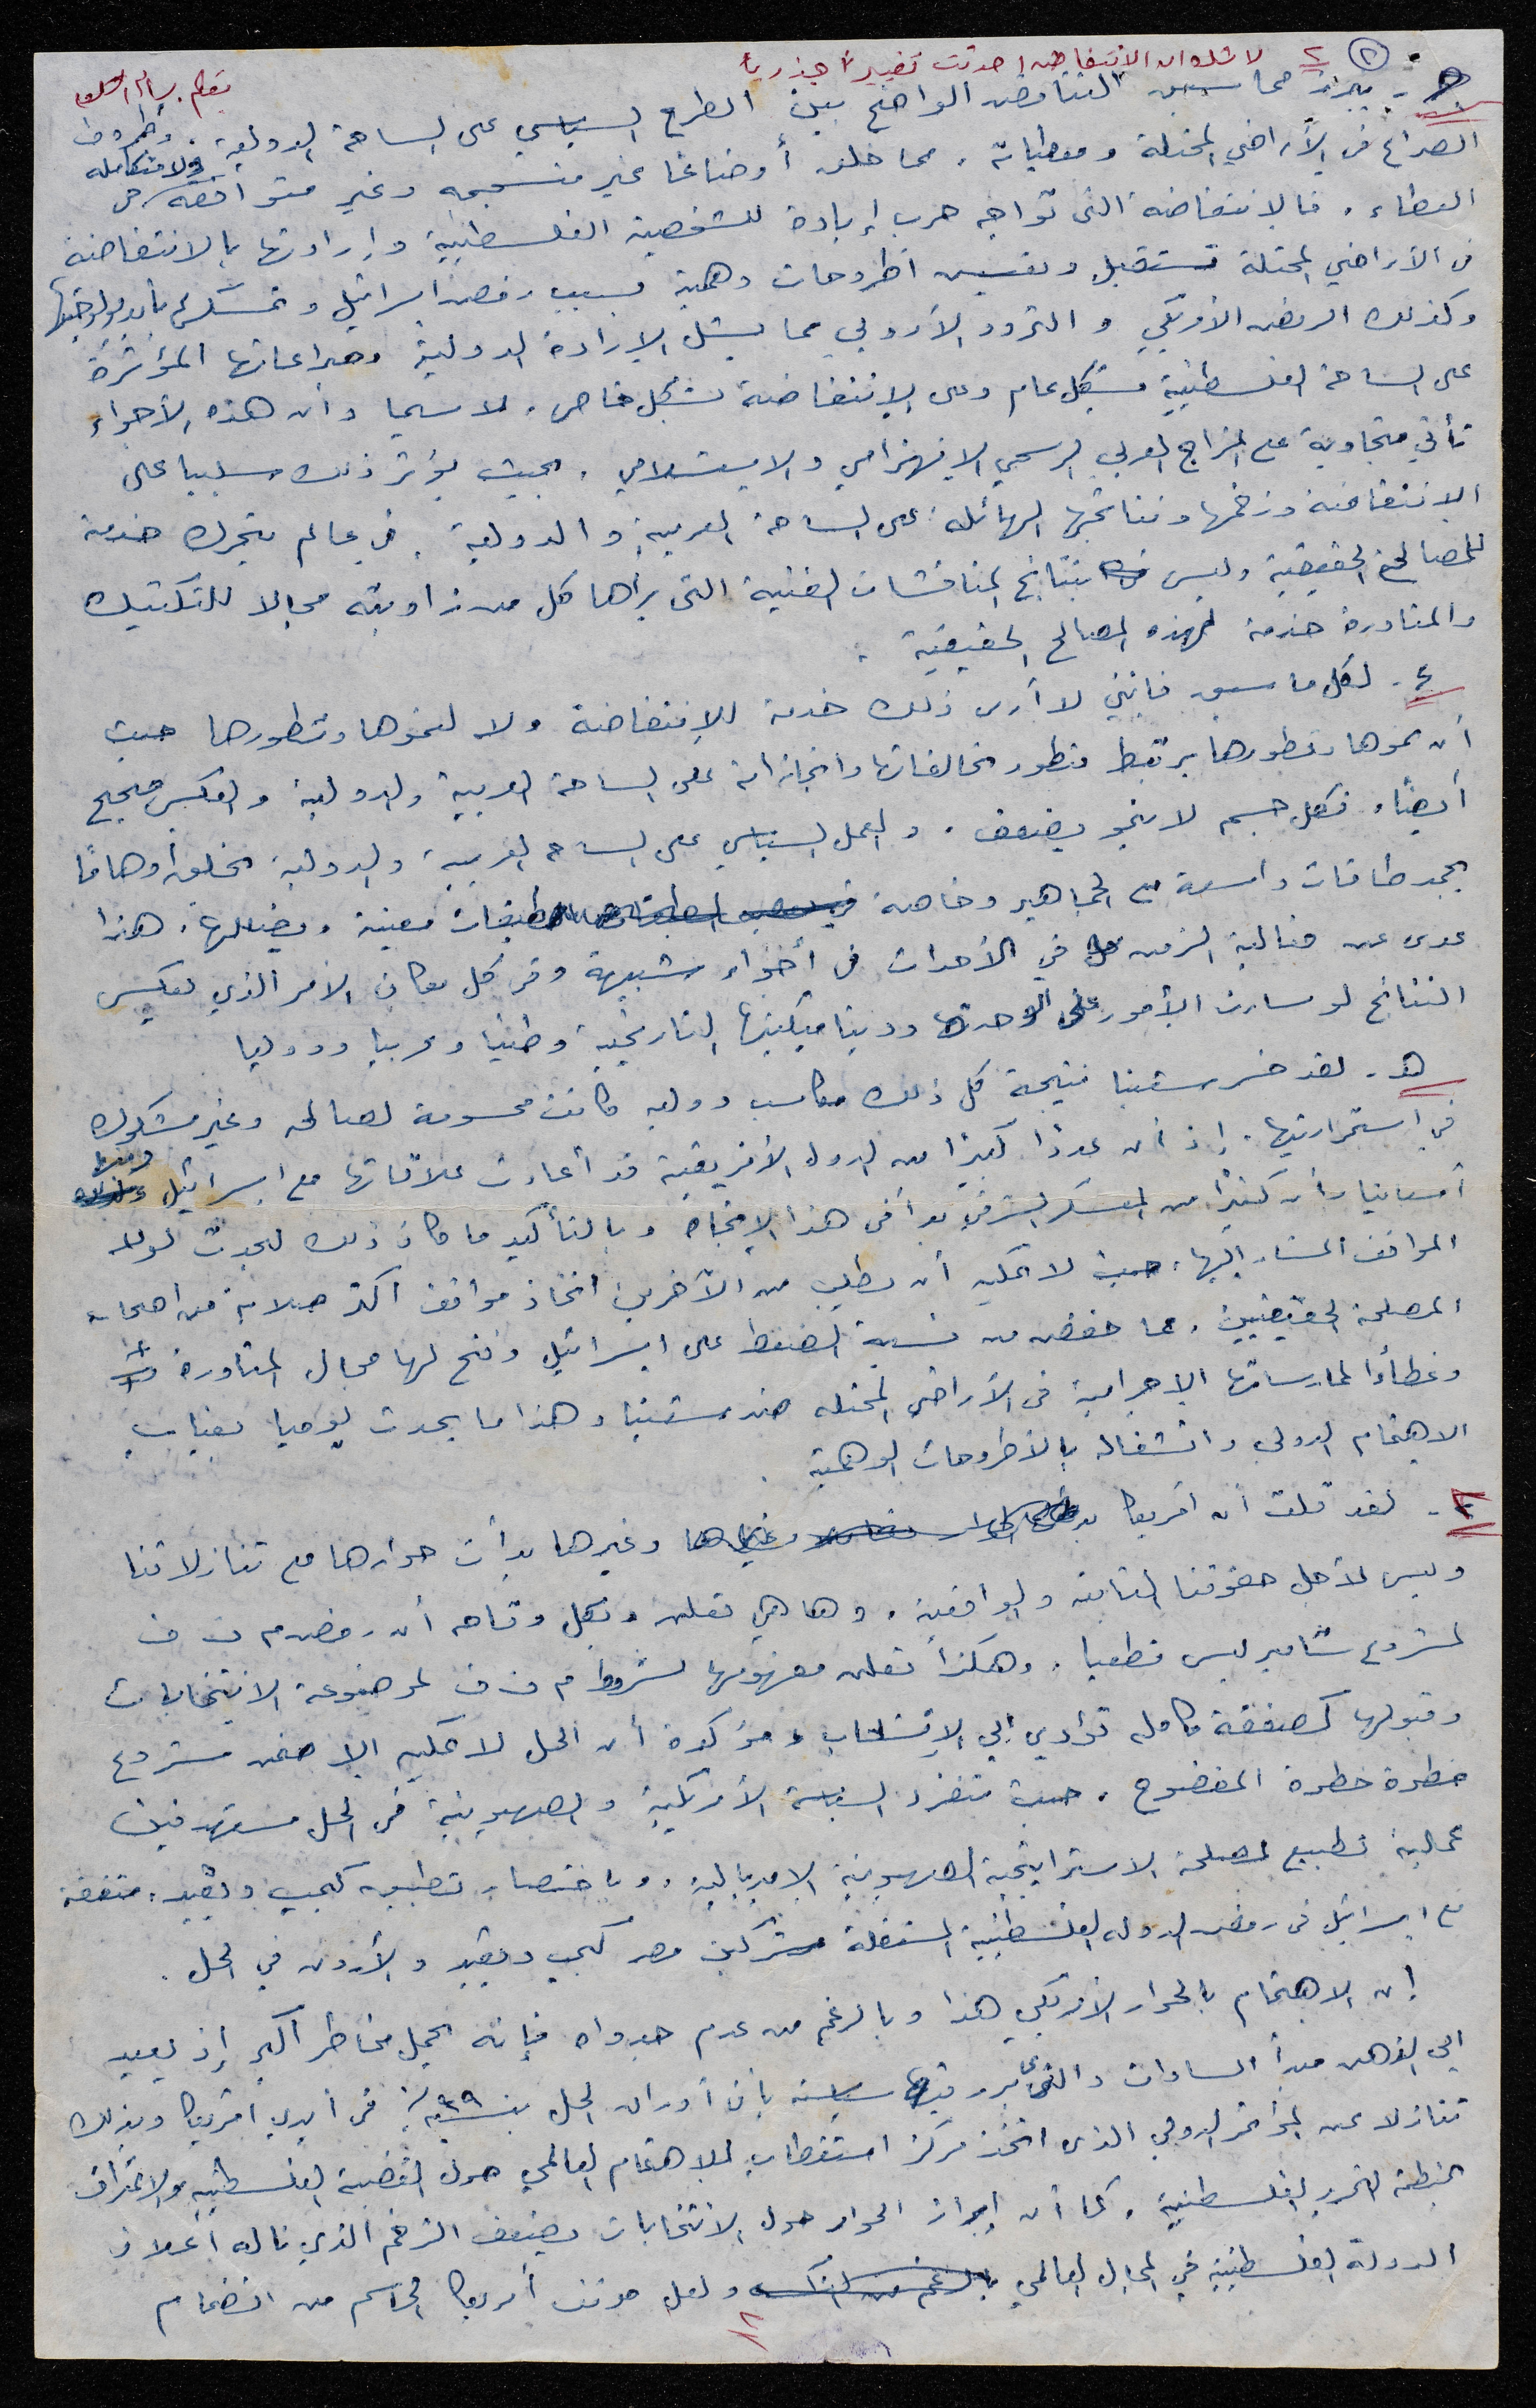 ٢ ٢ لا شك ان الانتفاضه احدثت تغييرا جذريا
بقلم بسام
يبرز مما سبق التناقض الواضح بين الطرح السياسي على الساحة الدولية. وظروف
الصراع في الأراضي المحتلة ومعطياته. مما خلق أوضاعا غير منسجمه وغير متوافقه ولا متكامله في
العطاء. فالانتفاضة التي تواجه حرب إبادة للشخصية الفلسطينية وإرادتها بالانتفاضة
في الأراضي المحتلة تستقبل وتعيش اطروحات وهمية بسبب رفض اسرائيل وتمسكها بأيديولوجيتها
وكذلك الرفض الأمريكي والتردد الأروبي مما يشل الإرادة الدولية وصراعاتها المؤثرة
على الساحة الفلسطينية بشكل عام وعلى الانتفاضة بشكل خاص. لا سيما وأن هذه الأجواء
تأتي متجاوبة مع المزاج العربي الرسمي الانهزامي والاستسلامي. بحيث يؤثر ذلك سلبيا على
الانتفاضة وزخمها ونتائجها الهائلة على الساحة العربية والدولية. في عالم يتحرك خدمة
للمصالح الحقيقية وليس بنتائج المناقشات الفنية التي يراها كل من زاويته مجالا للتكتيك
والمناورة خدمة لهذه المصالح الحقيقية.
٤. لكل ما سبق فانني لا أرى ذلك خدمة للإنتفاضة ولا لنموها وتطورها حيث
أن نموها وتطورها يرتبط بتطور تحالفاتها وانجازاته على الساحة العربية والدولية والعكس صحيح
أيضًا. فكل جسم لا ينمو يضعف. والعمل السياسي على الساحة العربية والدولية يخلق أوهامًا
يجمد طاقات واسعة من الجماهير وخاصة طبقات معينة ويضللها. هذا
عدى عن فعالية الزمن في الأحداث في أجواء شبيهة وفي كل مكان الأمر الذي يعكس
النتائج لو سارت الأمور على وحدتها وديناميكيتها التاريخية وطنيا وعربيا ودوليا
هـ. لقد خسر شعبنا نتيجة كل ذلك مكاسب دوليه كانت محسومة لصالحه وغير مشكوك
في استمراريتها. إذ أن عددًا كبيرًا من الدول الأفريقية قد أعادت علاقاتها مع اسرائيل ومنها
أسبانيا وأن كثيرًا من المعسكر الشرقي بدأ في هذا الإتجاه وبالتأكيد ما كان ذلك ليحدث لولا
المواقف المشار إليها. حيث لا يمكن أن يطلب من الآخرين اتخاذ مواقف أكثر صلابة من اصحاب
المصلحة الحقيقيين. مما خفض من نسبة الضغط على اسرائيل وفتح لها مجال المناورة
وغطاءً لممارساتها الإجرامية في الأراضي المحتله ضد شعبنا وهذا ما يحدث يوميا بغياب
الاهتمام الدولي وانشغاله بالأطروحات الوهمية.
لقد قلت أن أمريكا وغيرها بدأت حوارها مع تنازلاتنا
وليس لأجل حقوقنا الثابته والواقعية. وها هي تعلن وبكل وقاحه أن رفض م ت ف
لمشروع شامير ليس قطعيا. وهكذا تعلن مفهومها لشروط م ت ف لموضوعة الانتخابات
وقبولها كصفقة كامله تؤدي إلى الإنسحاب ومؤكدة أن الحل لا يمكن إلا ضمن مشروع
خطوة خطوة المفضوح. حيث تنفرد السياسة الأمريكية والصهيونية في الحل مستهدفين
عملية تطبيع لمصلحة الاستراتيجية الصهيونية الامبريالية. وباختصار تطبيق كمب ديفيد. متفقة
مع اسرائيل في رفض الدولة الفلسطينية المستقلة مشركين مصر كمب ديفيد والأردن في الحل.
إن الاهتمام بالحوار الأمريكي هذا وبالرغم من عدم جدواه فإنه يحمل مخاطر أكبر إذ يعيد
إلى الذهن مبدأ السادات والتي برر فيها سياسته بأن أوراق الحل بنسبة ٩٩٪ في أيدي امريكا وبذلك
تنازلا عن المؤتمر الدولي الذي اتخذ مركز استقطاب للاهتمام العالمي حول القضية الفلسطينية والاعتراف
بمنظمة التحرير الفلسطينية. كما أن إبراز الحوار حول الانتخابات يضعف الزخم الذي ناله اعلان
الدولة الفلسطينية في المجال العالمي ولعل موقف أمريكا الحاسم من انضمام